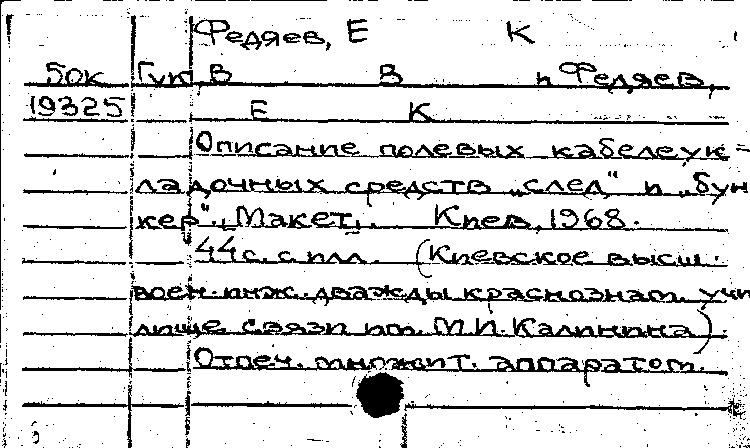 Федяев, Е К
БОК Гук, В В и Федяев,
19325 Е К
Описание полевых кабелеук-
ладочных средств „след" и „Бун
кер". [Макет]. Киев, 1968.
44 с. с илл. (Киевское высш.
воен. инж. дважды краснознам. учи
лище связи им. М.И. Калинина).
Отпеч. множит. аппаратом.